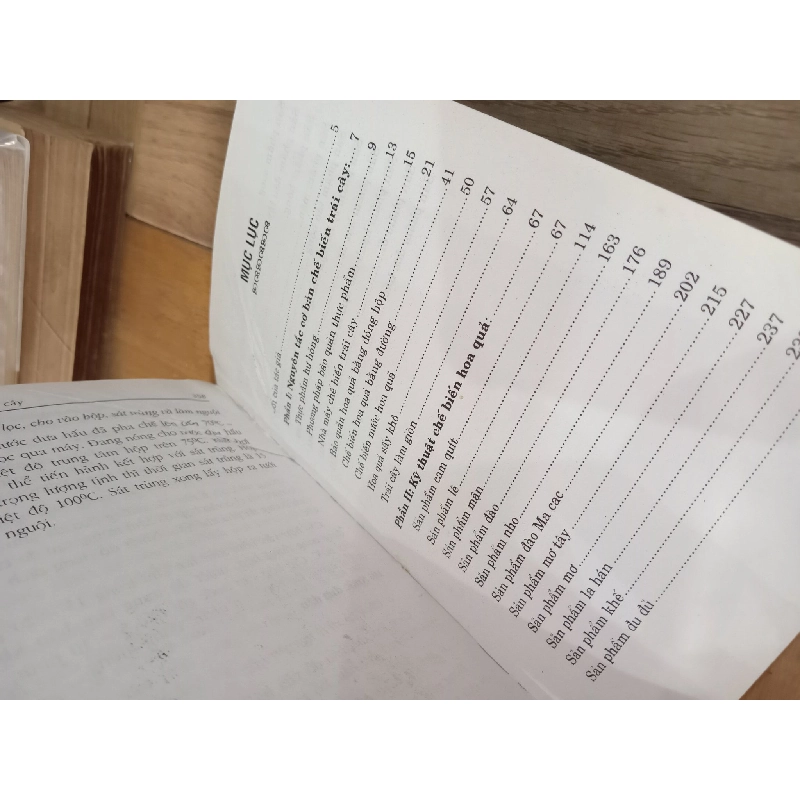 cây
lọc, cho vào hộp, sát trùng và làm nguội
ước dưa hấu đã pha chế lên đến 70°C,
ọc qua máy. Đang nóng cho nước dưa hấu
ệt độ trung tâm hộp trên 75°C,
thể tiến hành kết hợp với sát trùng.
trọng lượng tịnh thì thời gian sát trùng là 15
iệt độ 100°C. Sát trùng xong lấy hộp ra
nguội.
MỤC LỤC
của tác giả 5
Phần I: Nguyên tắc cơ bản chế biến trái cây: 7
Thực phẩm hư hỏng 9
Phương pháp bảo quản thực phẩm 13
Nhà máy chế biến trái cây 15
Bảo quản hoa quả bằng đóng hộp 21
Chế biến hoa quả bằng đường 41
Chế biến nước hoa quả 50
Hoa quả sấy khô 57
Trái cây làm giòn 64
Phần II: Kỹ thuật chế biến hoa quả 67
Sản phẩm cam quít 67
Sản phẩm lê 114
Sản phẩm mận 163
Sản phẩm đào 176
Sản phẩm nho 189
Sản phẩm đào Ma cac 202
Sản phẩm mơ tây 215
Sản phẩm mơ 227
Sản phẩm la hán 237
Sản phẩm khế
Sản phẩm đu đủ